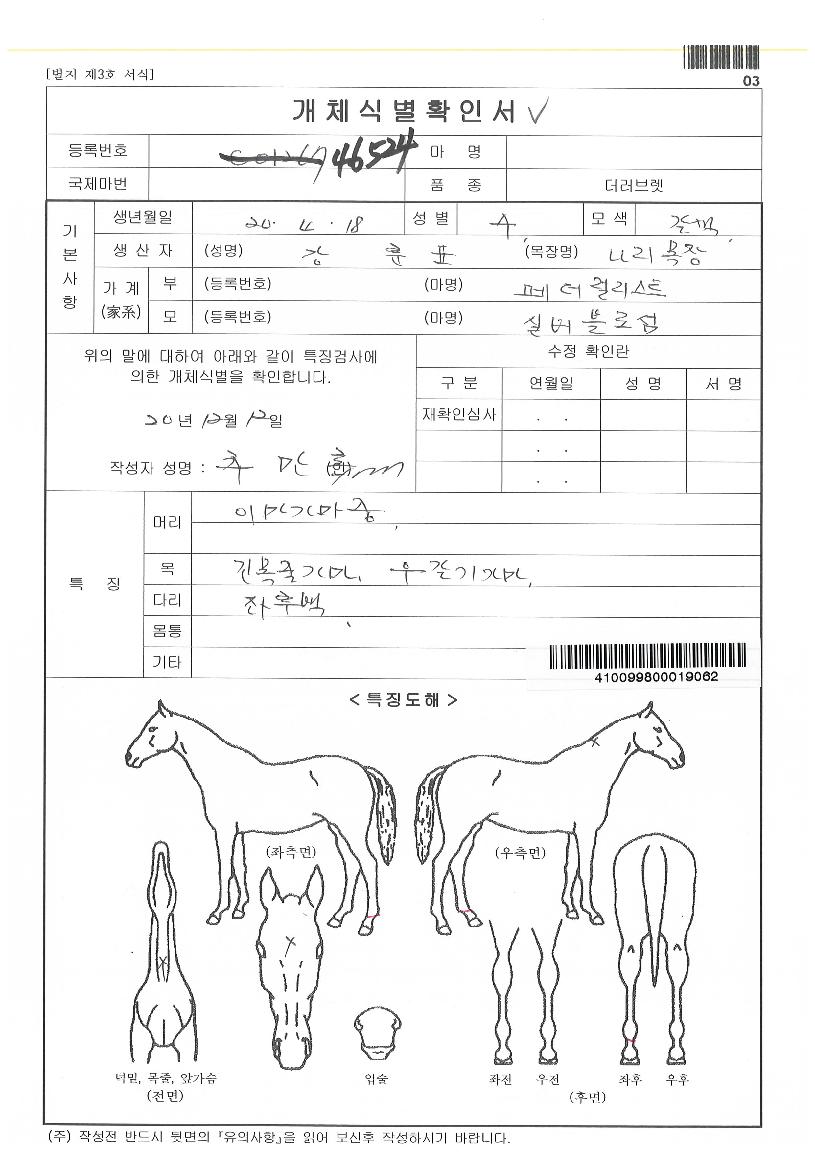 03
[별지 제3호 서식]
개체식별확인서 ✓
등록번호 46524 마 명
국제마번 품 종 더러브렛
기본사항
생년월일 20. 4. 18 성별 수 모색 갈색
생산자 (성명) 강 훈 표 (목장명) 나리목장
가계(家系) 부 (등록번호) (마명) 페더럴리스트
모 (등록번호) (마명) 실버블로섬
위의 말에 대하여 아래와 같이 특징검사에
의한 개체식별을 확인합니다.
20년 12월 12일
작성자 성명 :
수정 확인란
구분 연월일 성명 서명
재확인심사 . .
. .
. .
특 징
머리 이마가마중
목 진목줄가마, 우갈기가마,
다리 좌후백
몸통
기타
410099800019062
< 특징도해 >
(좌측면) (우측면)
턱밑, 목줄, 앞가슴 입술 좌전 우전 좌후 우후
(전면) (후면)
(주) 작성전 반드시 뒷면의 『유의사항』을 읽어 보신후 작성하시기 바랍니다.